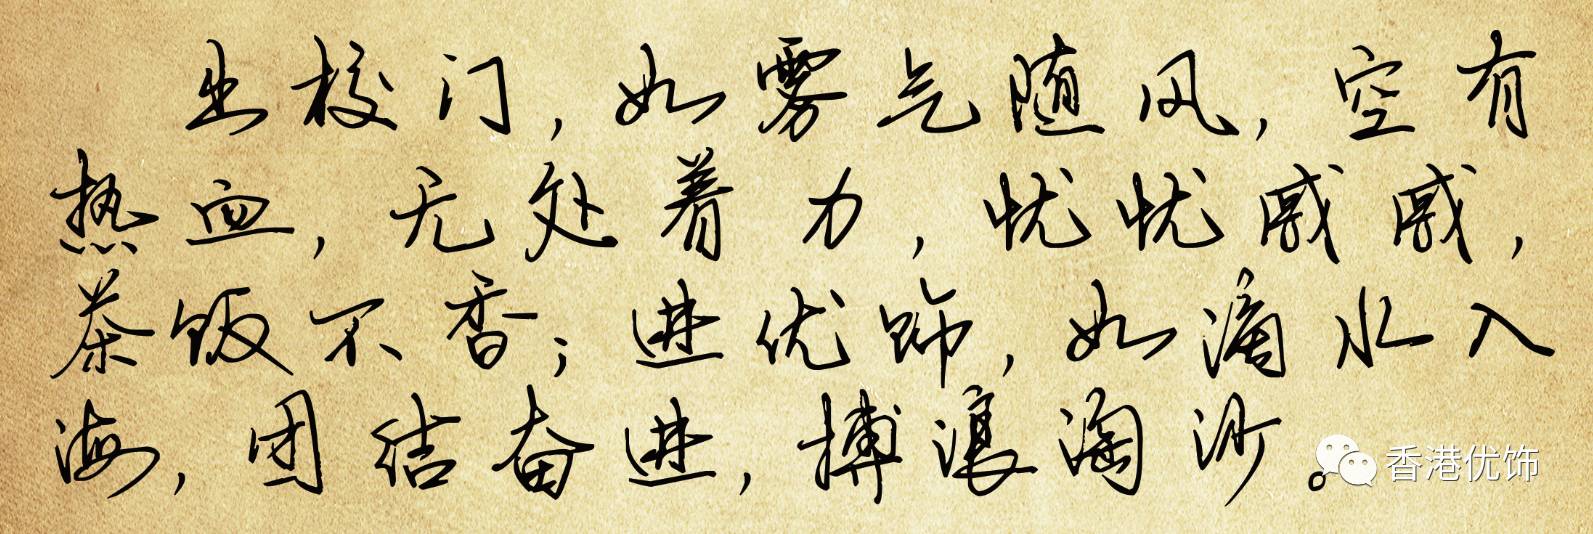 出校门,如雾气随风,空有
热血,无处着力,忧忧戚戚,
茶饭不香;进优饰,如滴水入
海,团结奋进,搏浪淘沙。
香港优饰